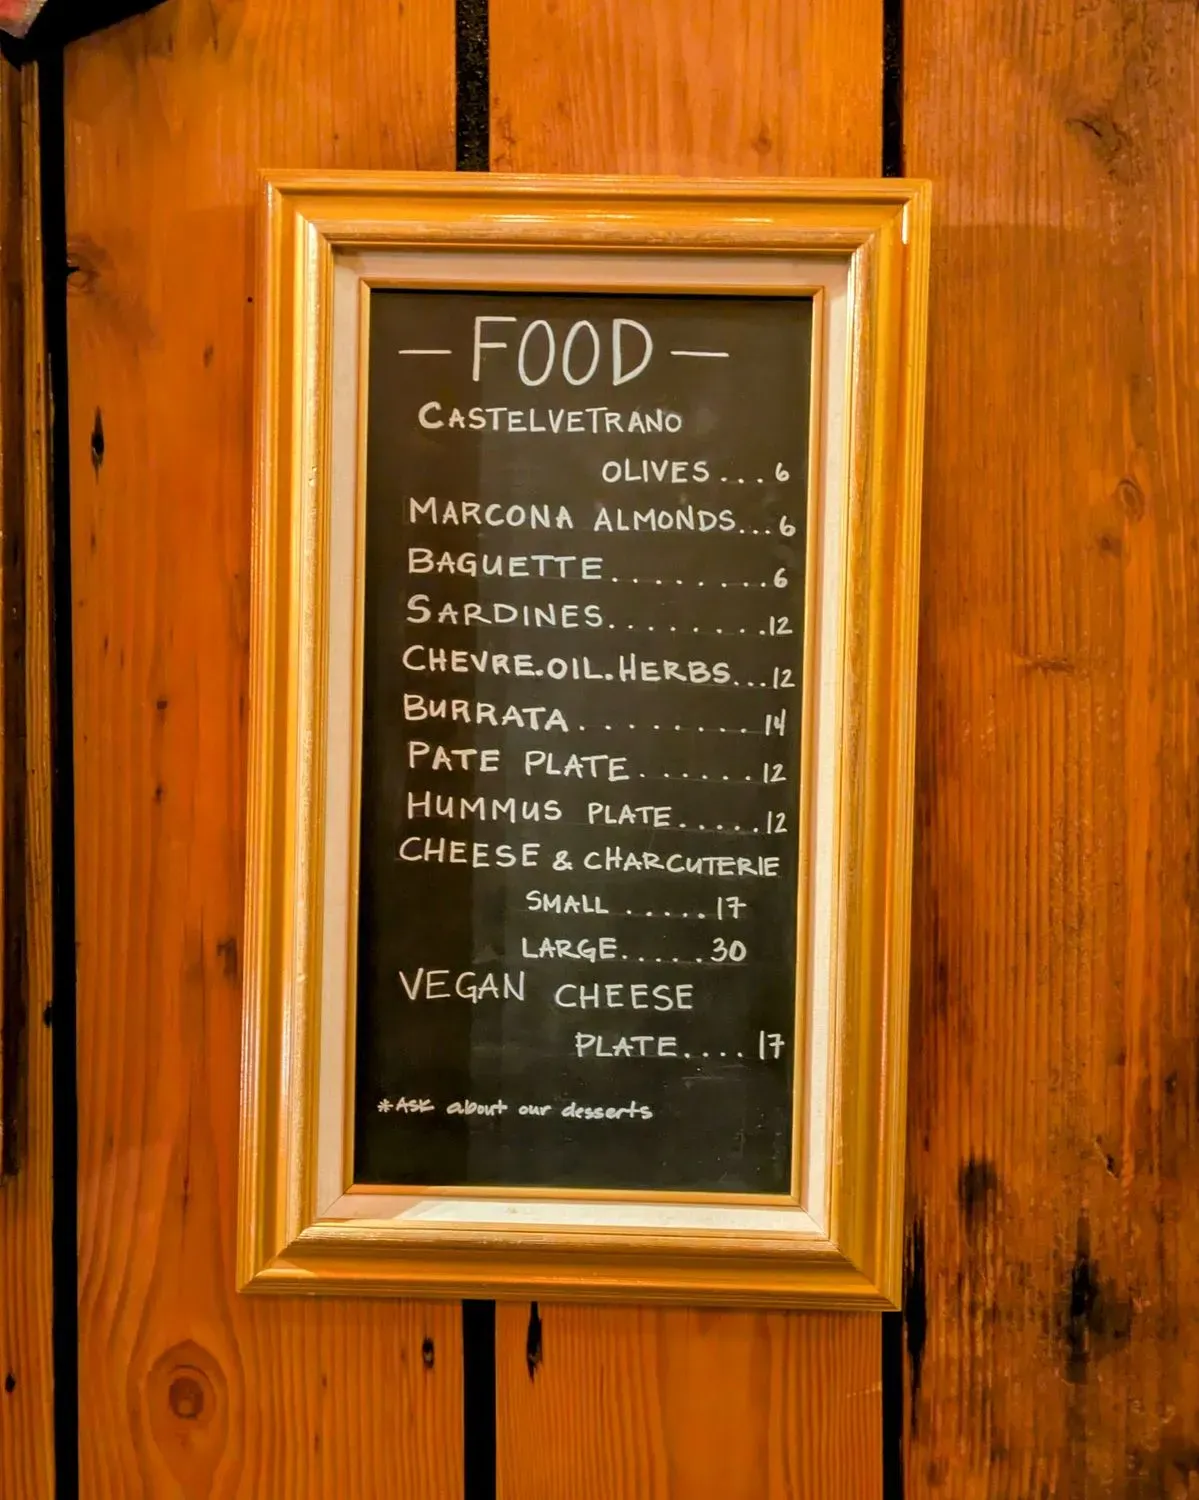 — FOOD —
CASTELVETRANO
OLIVES...6
MARCONA ALMONDS...6
BAGUETTE........6
SARDINES........12
CHEVRE.OIL.HERBS...12
BURRATA........14
PATE PLATE......12
HUMMUS PLATE.....12
CHEESE & CHARCUTERIE
SMALL .....17
LARGE.....30
VEGAN CHEESE
PLATE....17
*Ask about our desserts